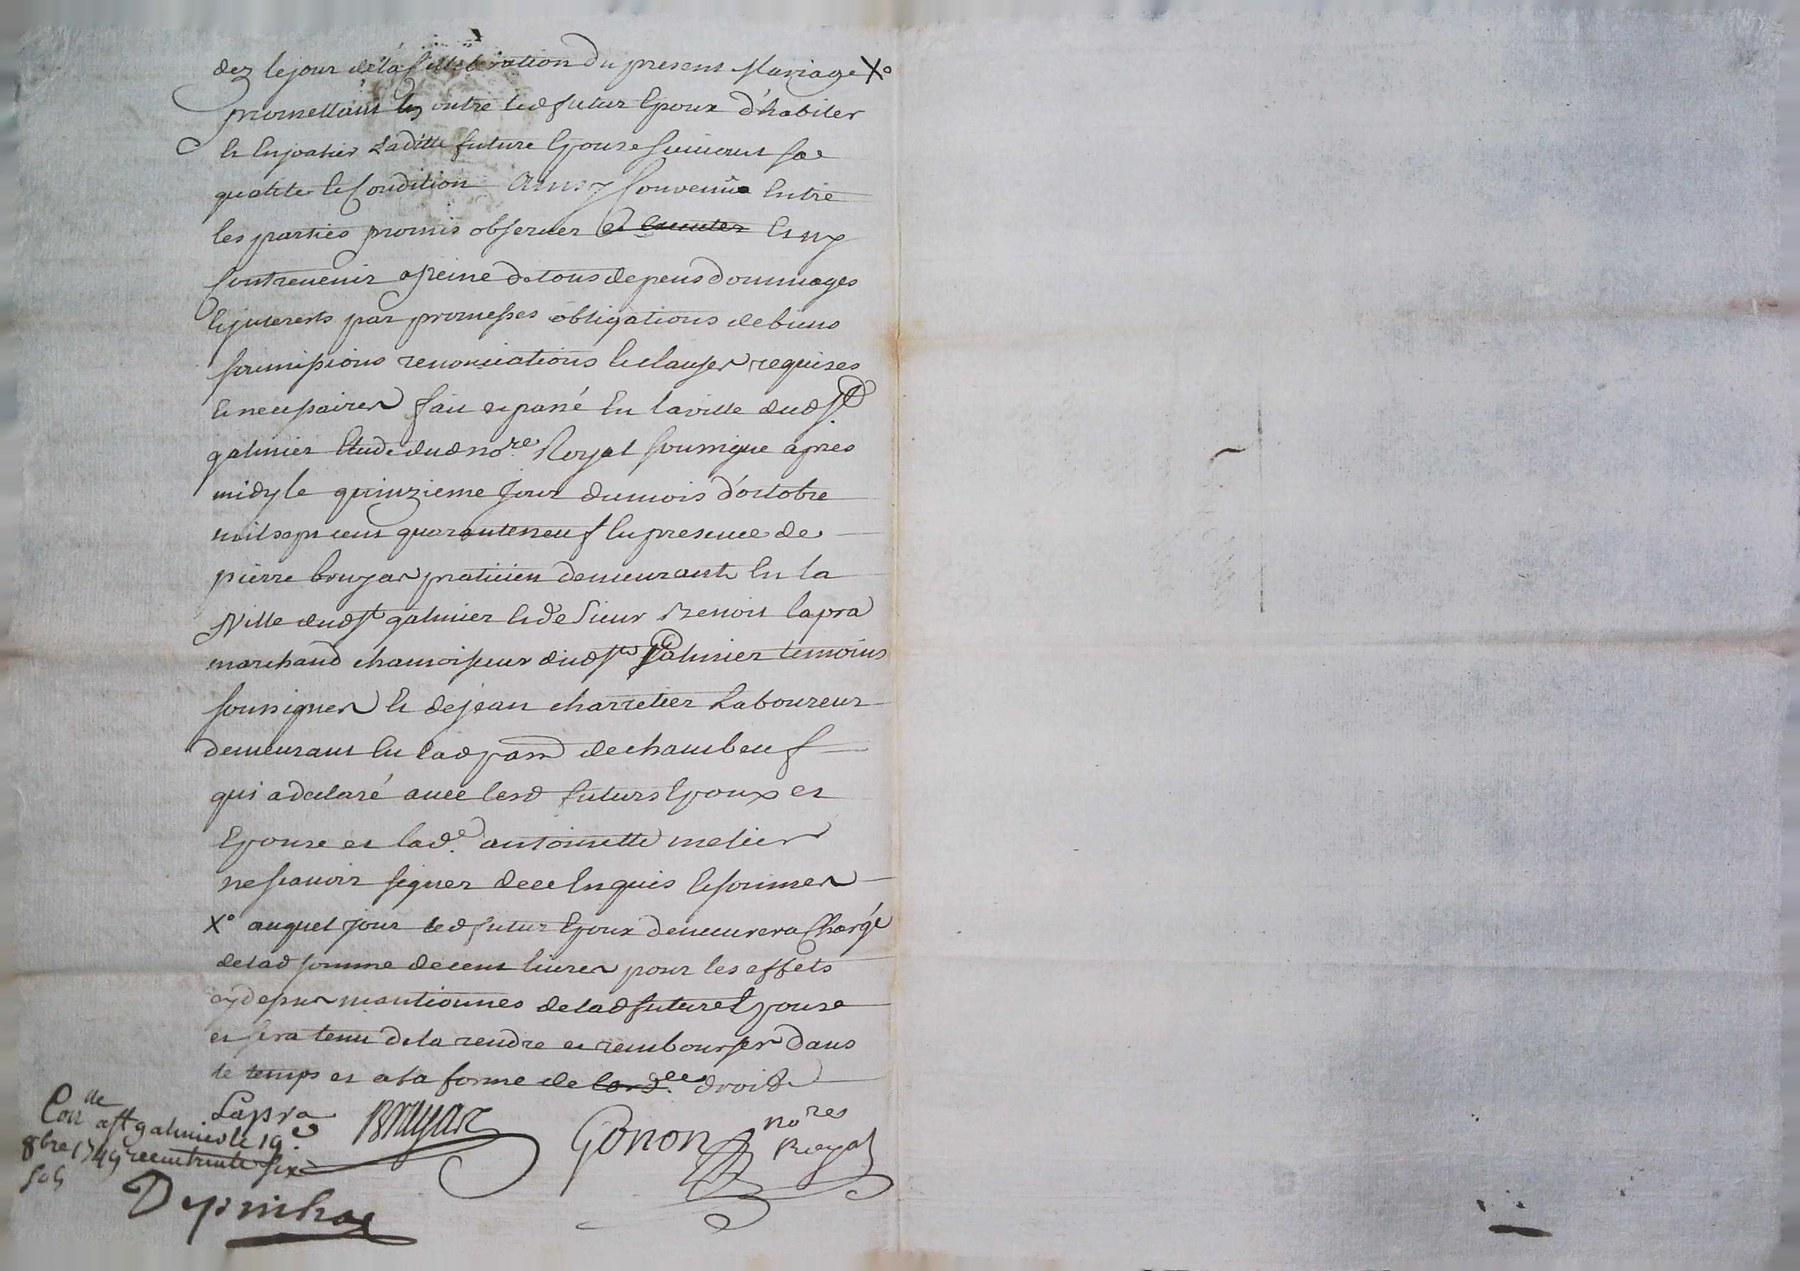 dez le jour de la Cellebration du present Mariage X°
promettant En outre led futur Epoux d'habiler
Et Enjoaler Laditte future Epouse suivant sa
qualite Et Condition Ainsy Convenû Entre
les parties promis observer et executer Et ny
Contrevenir a peine de tous depens dommages
Et jnterests par promesses obligations de biens
soumissions renonciations Et clauses requises
Et necessaires fait et passé En la ville dud St
galmier Etude dud nore Royal soussigné apres
midy le quinzieme jour du mois d'octobre
mil sept cent quarante neuf En presence de
pierre bruyas praticien demeurant En la
Ville dud St galmier Et de Sieur Benoit lapra
marchand chamoiseur dud St Galmier temoins
soussignes Et de jean charretier Laboureur
demeurant En lad parr de chambeuf
qui a declaré avec lesd futurs Epoux et
Epouse et lade antoinette melier
ne scavoir signer de ce Enquis Et sommes
X° auquel jour led futur Epoux demeurera Chargé
de lad somme de cent livres pour les effets
cy depus mantionnes de lad future Epouse
et sera tenu de la rendre et rembourser dans
le temps et a la forme de droit
Lapra Bruyas Gonon nores Royal
Conlle a St galmier le 19
8bre 1749 recu trente six
sols